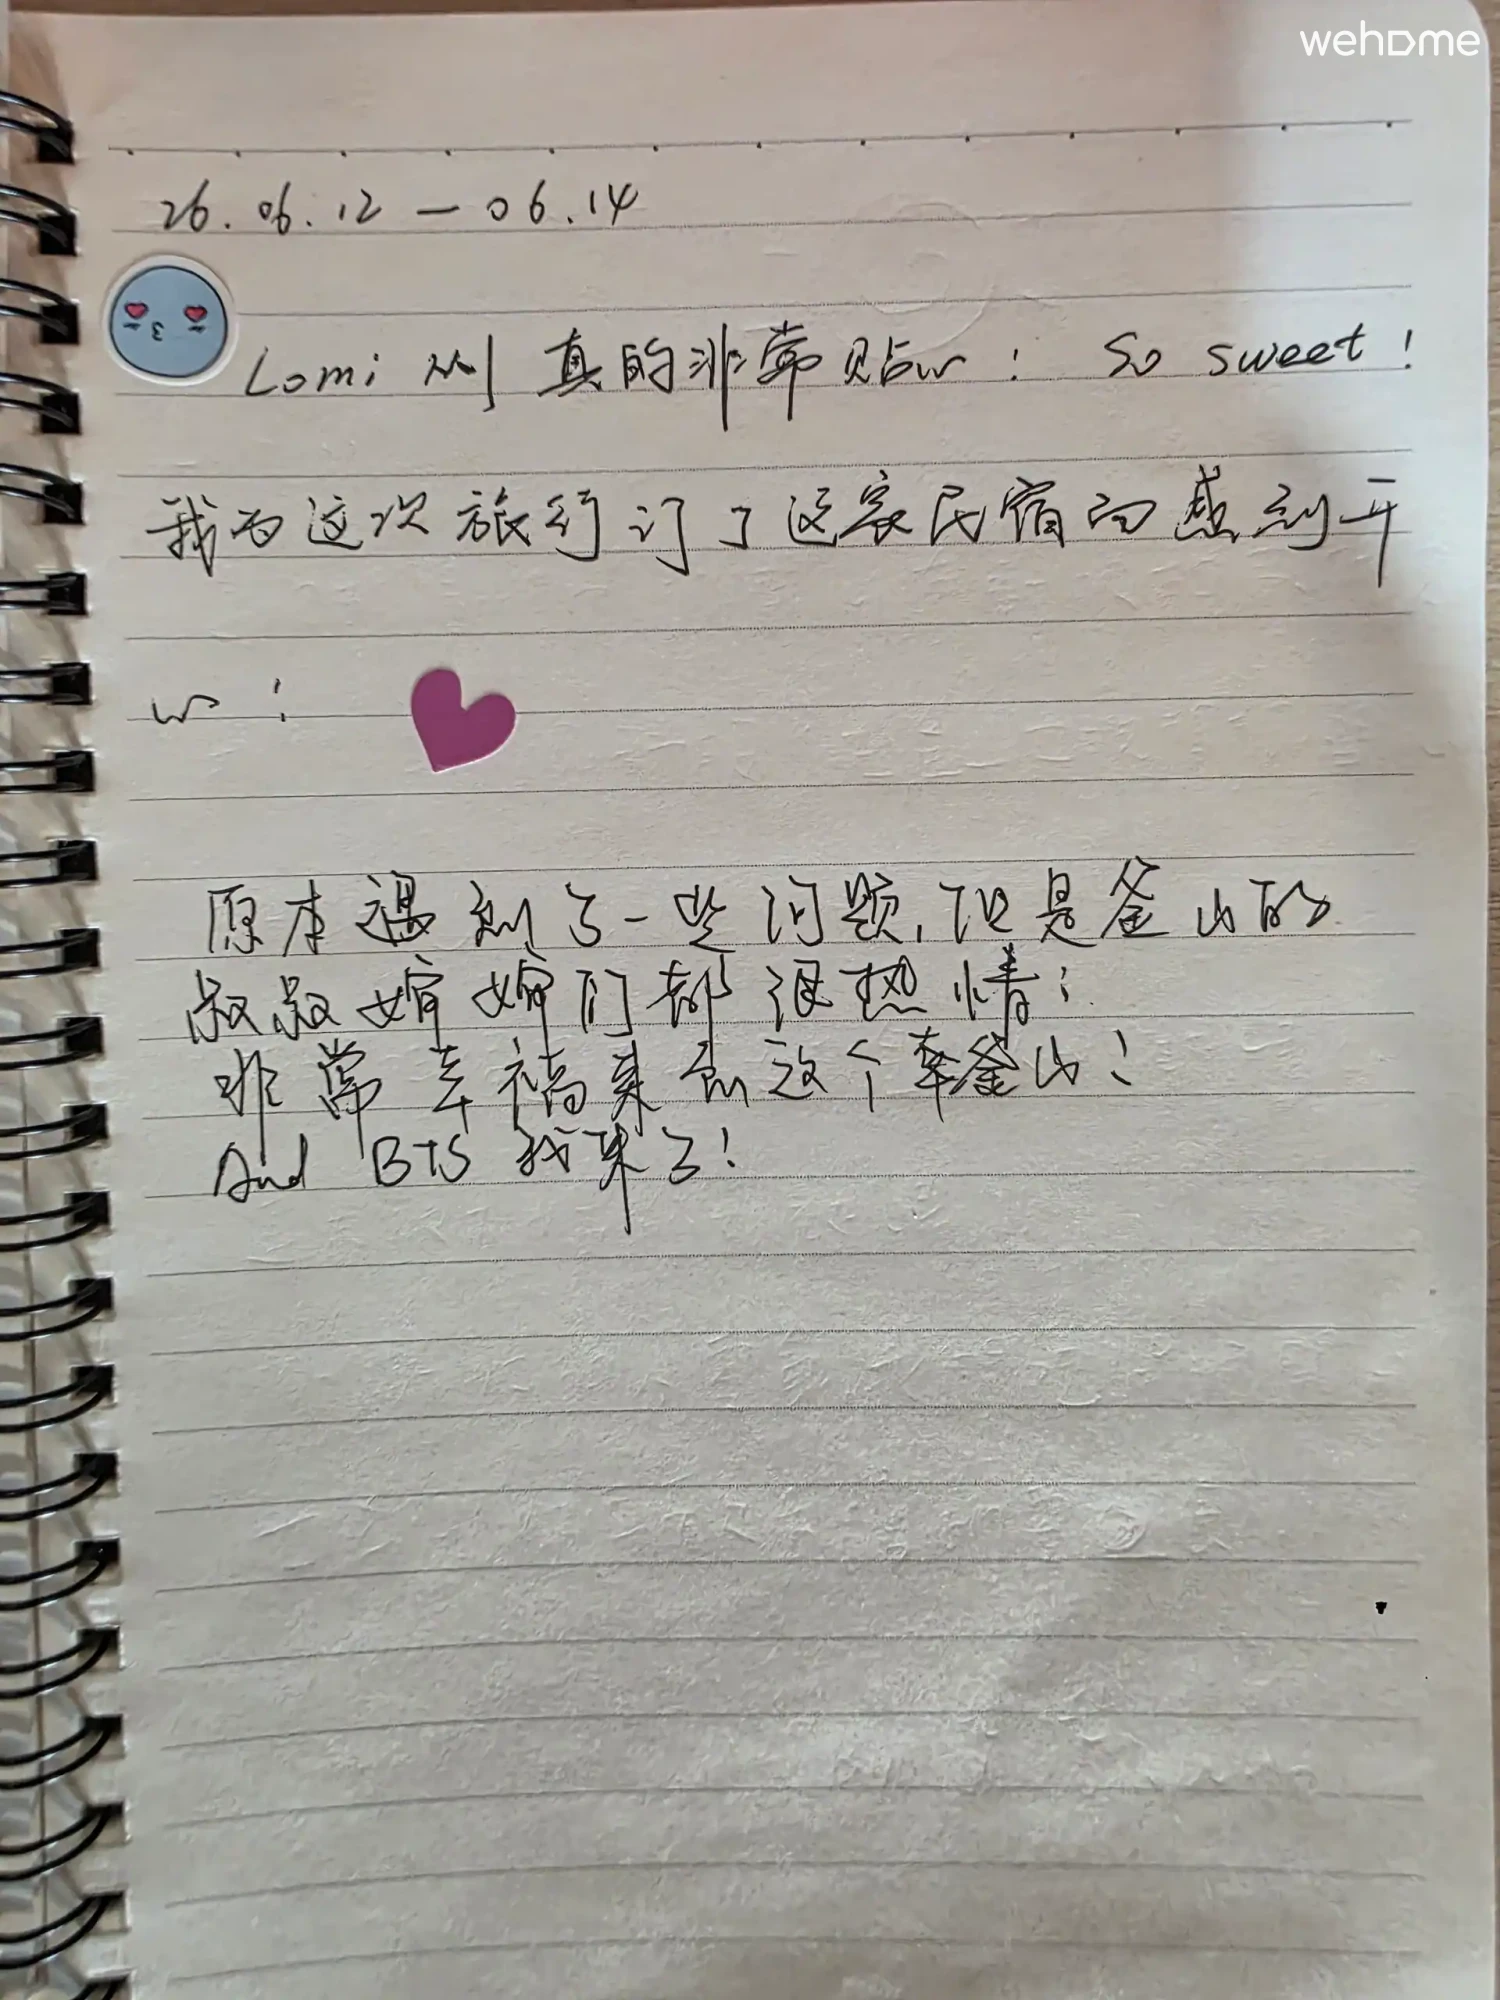 wehome
26.06.12 — 06.14
Lomi 真的非常贴心! So sweet!
我为这次旅行订了这家民宿而感到开
心!
原本遇到了一些问题,但是釜山的
叔叔婶婶们都很热情!
非常幸福来到这个釜山!
And BTS 我来了!